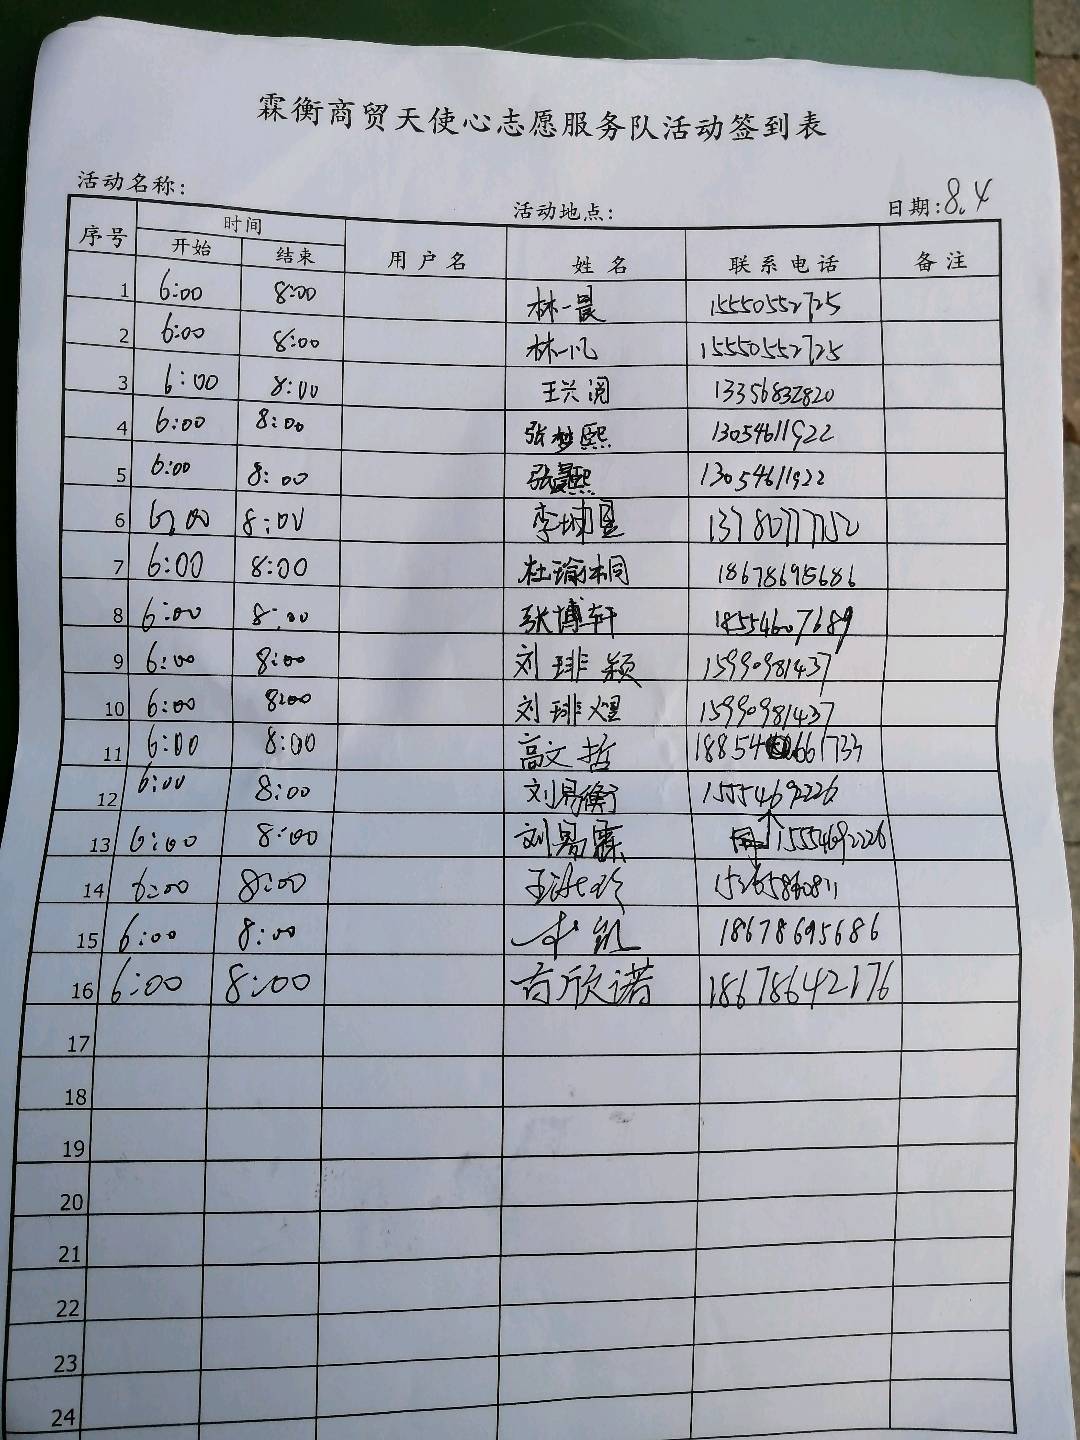 霖衡商贸天使心志愿服务队活动签到表
活动名称: 活动地点: 日期:8.4
序号 时间 用户名 姓名 联系电话 备注
开始 结束
1 6:00 8:00 林一晨 15550552725
2 6:00 8:00 林一凡 15550552725
3 6:00 8:00 王兴阅 13356832820
4 6:00 8:00 张梦熙 13054611922
5 6:00 8:00 张 熙 13054611922
6 6:00 8:00 李 13780777152
7 6:00 8:00 杜瑜桐 18678695686
8 6:00 8:00 张博轩 18554607689
9 6:00 8:00 刘琲颖 15990981437
10 6:00 8:00 刘琲煌 15990981437
11 6:00 8:00 高文哲 18854661733
12 6:00 8:00 刘易衡 15554692226
13 6:00 8:00 刘易霖 15554692226
14 6:00 8:00 王
15 6:00 8:00 18678695686
16 6:00 8:00 苟欣诺 18678642176
17
18
19
20
21
22
23
24